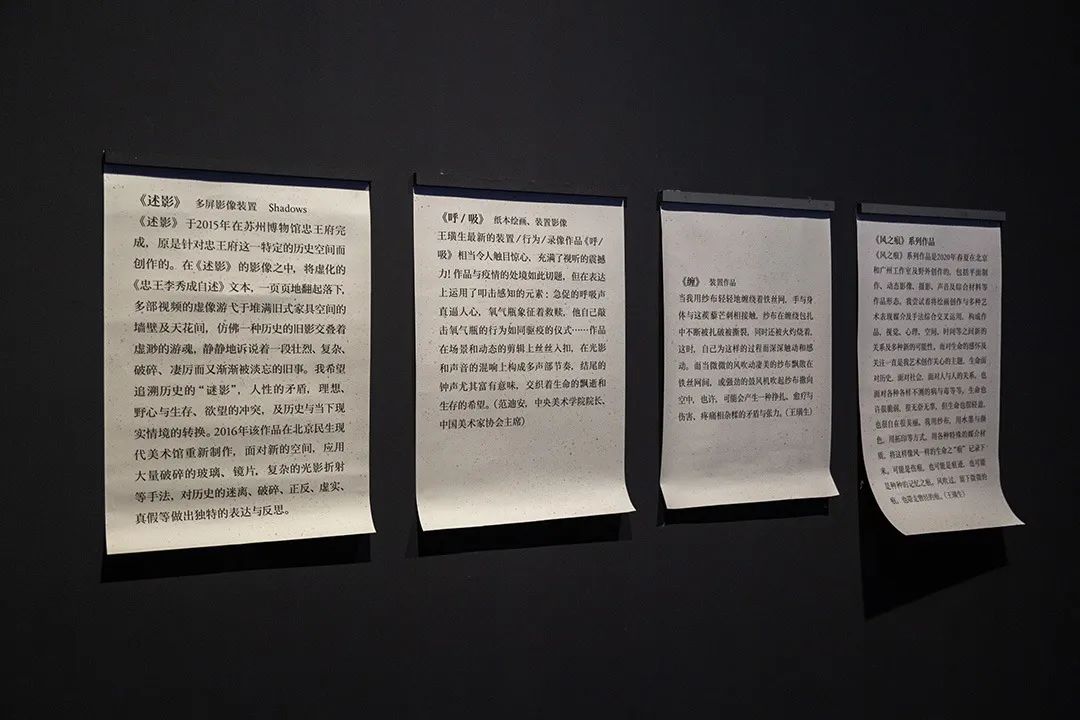 《述影》 多屏影像装置 Shadows
《述影》于2015年在苏州博物馆忠王府完
成，原是针对忠王府这一特定的历史空间而
创作的。在《述影》的影像之中，将虚化的
《忠王李秀成自述》文本，一页页地翻起落下，
多部视频的虚像游弋于堆满旧式家具空间的
墙壁及天花间，仿佛一种历史的旧影交叠着
虚渺的游魂，静静地诉说着一段壮烈、复杂、
破碎、凄厉而又渐渐被淡忘的旧事。我希望
追溯历史的“谜影”，人性的矛盾，理想、
野心与生存、欲望的冲突，及历史与当下现
实情境的转换。2016年该作品在北京民生现
代美术馆重新制作，面对新的空间，应用
大量破碎的玻璃、镜片，复杂的光影折射
等手法，对历史的迷离、破碎、正反、虚实、
真假等做出独特的表达与反思。
《呼/吸》 纸本绘画、装置影像
王璜生最新的装置/行为/录像作品《呼/
吸》相当令人触目惊心，充满了视听的震撼
力！作品与疫情的处境如此切题，但在表达
上运用了叩击感知的元素：急促的呼吸声
直逼人心，氧气瓶象征着救赎，他自己敲
击氧气瓶的行为如同驱疫的仪式……作品
在场景和动态的剪辑上丝丝入扣，在光影
和声音的混响上构成多声部节奏，结尾的
钟声尤其富有意味，交织着生命的飘逝和
生存的希望。（范迪安，中央美术学院院长、
中国美术家协会主席）
《缠》 装置作品
当我用纱布轻轻地缠绕着铁丝网，手与身
体与这蒺藜芒刺相接触，纱布在缠绕包扎
中不断被扎破被撕裂，同时还被火灼烧着，
这时，自己为这样的过程而深深触动和感
动。而当微微的风吹动凄美的纱布飘散在
铁丝网间，或强劲的鼓风机吹起纱布撒向
空中，也许，可能会产生一种挣扎、愈疗与
伤害、疼痛相杂糅的矛盾与张力。（王璜生）
《风之痕》系列作品
《风之痕》系列作品是2020年春夏在北京
和广州工作室及野外创作的，包括平面制
作、动态影像、摄影、声音及综合材料等
作品形态。我尝试着将绘画创作与多种艺
术表现媒介及手法综合交叉运用，构成作
品、视觉、心理、空间、时间等之间新的
关系及多种新的可能性。而对生命的感怀及
关注一直是我艺术创作关心的主题，生命面
对历史，面对社会，面对人与人的关系，也
面对各种各样不测的病与毒等等，生命也
许很脆弱，很无奈无辜，但生命也很轻盈，
也很自在很美丽。我用纱布，用水墨与颜
色，用拓印等方式，用各种特殊的媒介材
质，将这样像风一样的生命之“痕”记录下
来。可能是伤痕，也可能是痕迹，也可能
是种种的记忆之痕。风吹过，留下微微的
痕，也带走曾经的痕。（王璜生）